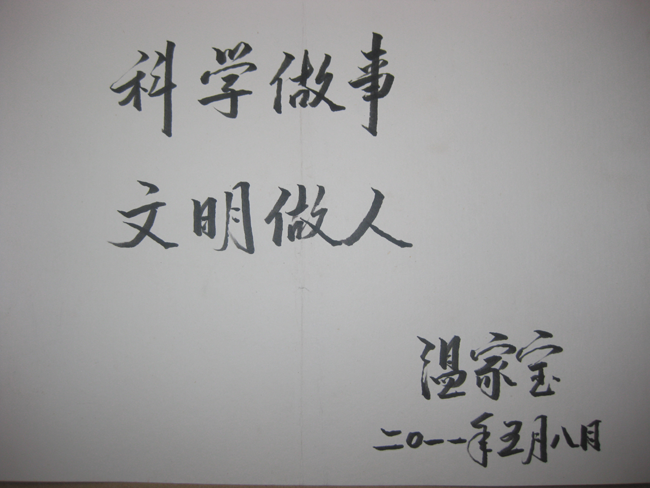 科学做事
文明做人
温家宝
二〇一一年五月八日